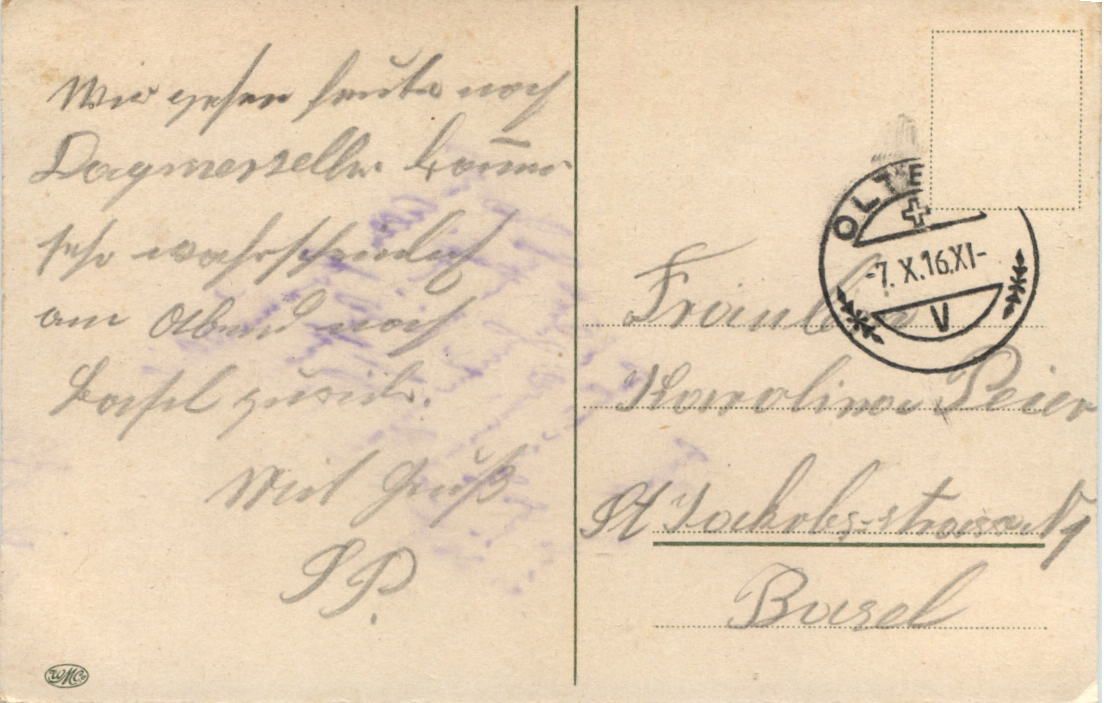 Wir gehen heute noch
Dagmersellen kom̅en
sehr wahrscheinlich
am Abend nach
Basel zurück.
Mit Gruß
S P.
OLTEN
-7. X. 16. XI-
V
Fräulein
Karolina Peier
St Jackobs-strasse
Basel